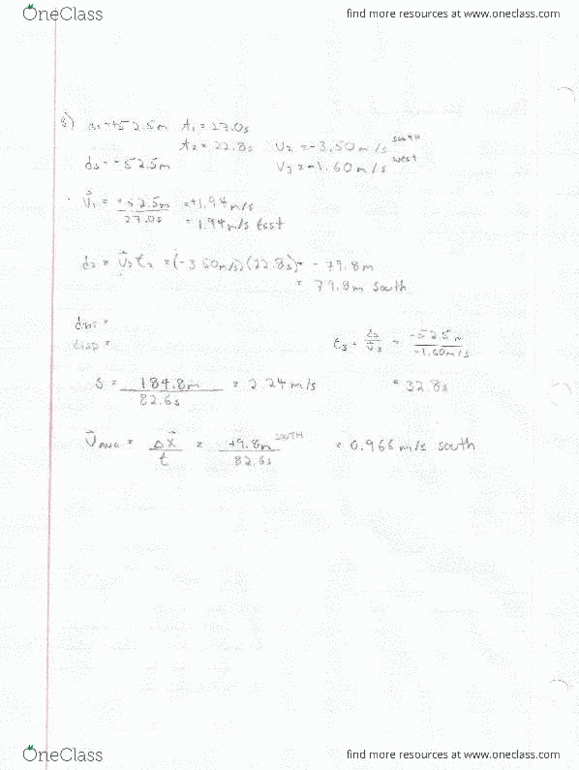 OneClass
find more resources at www.oneclass.com
d₁=+52.5m t₁=27.0s
t₂=22.8s V₂=-3.50m/s south
d₃=-52.5m V₃=-1.60m/s west
V⃗₁ = +52.5m / 27.0s = +1.94m/s
= 1.94m/s East
d₂ = V⃗₂t₂ = (-3.50m/s)(22.8s) = -79.8m
= 79.8m south
dist =
disp =
t₃ = d₃ / V⃗₃ = -52.5m / -1.60m/s
= 32.8s
S = 184.8m / 82.6s = 2.24m/s
V⃗ave = ΔX⃗ / t = 79.8m SOUTH / 82.6s = 0.966m/s south
OneClass
find more resources at www.oneclass.com